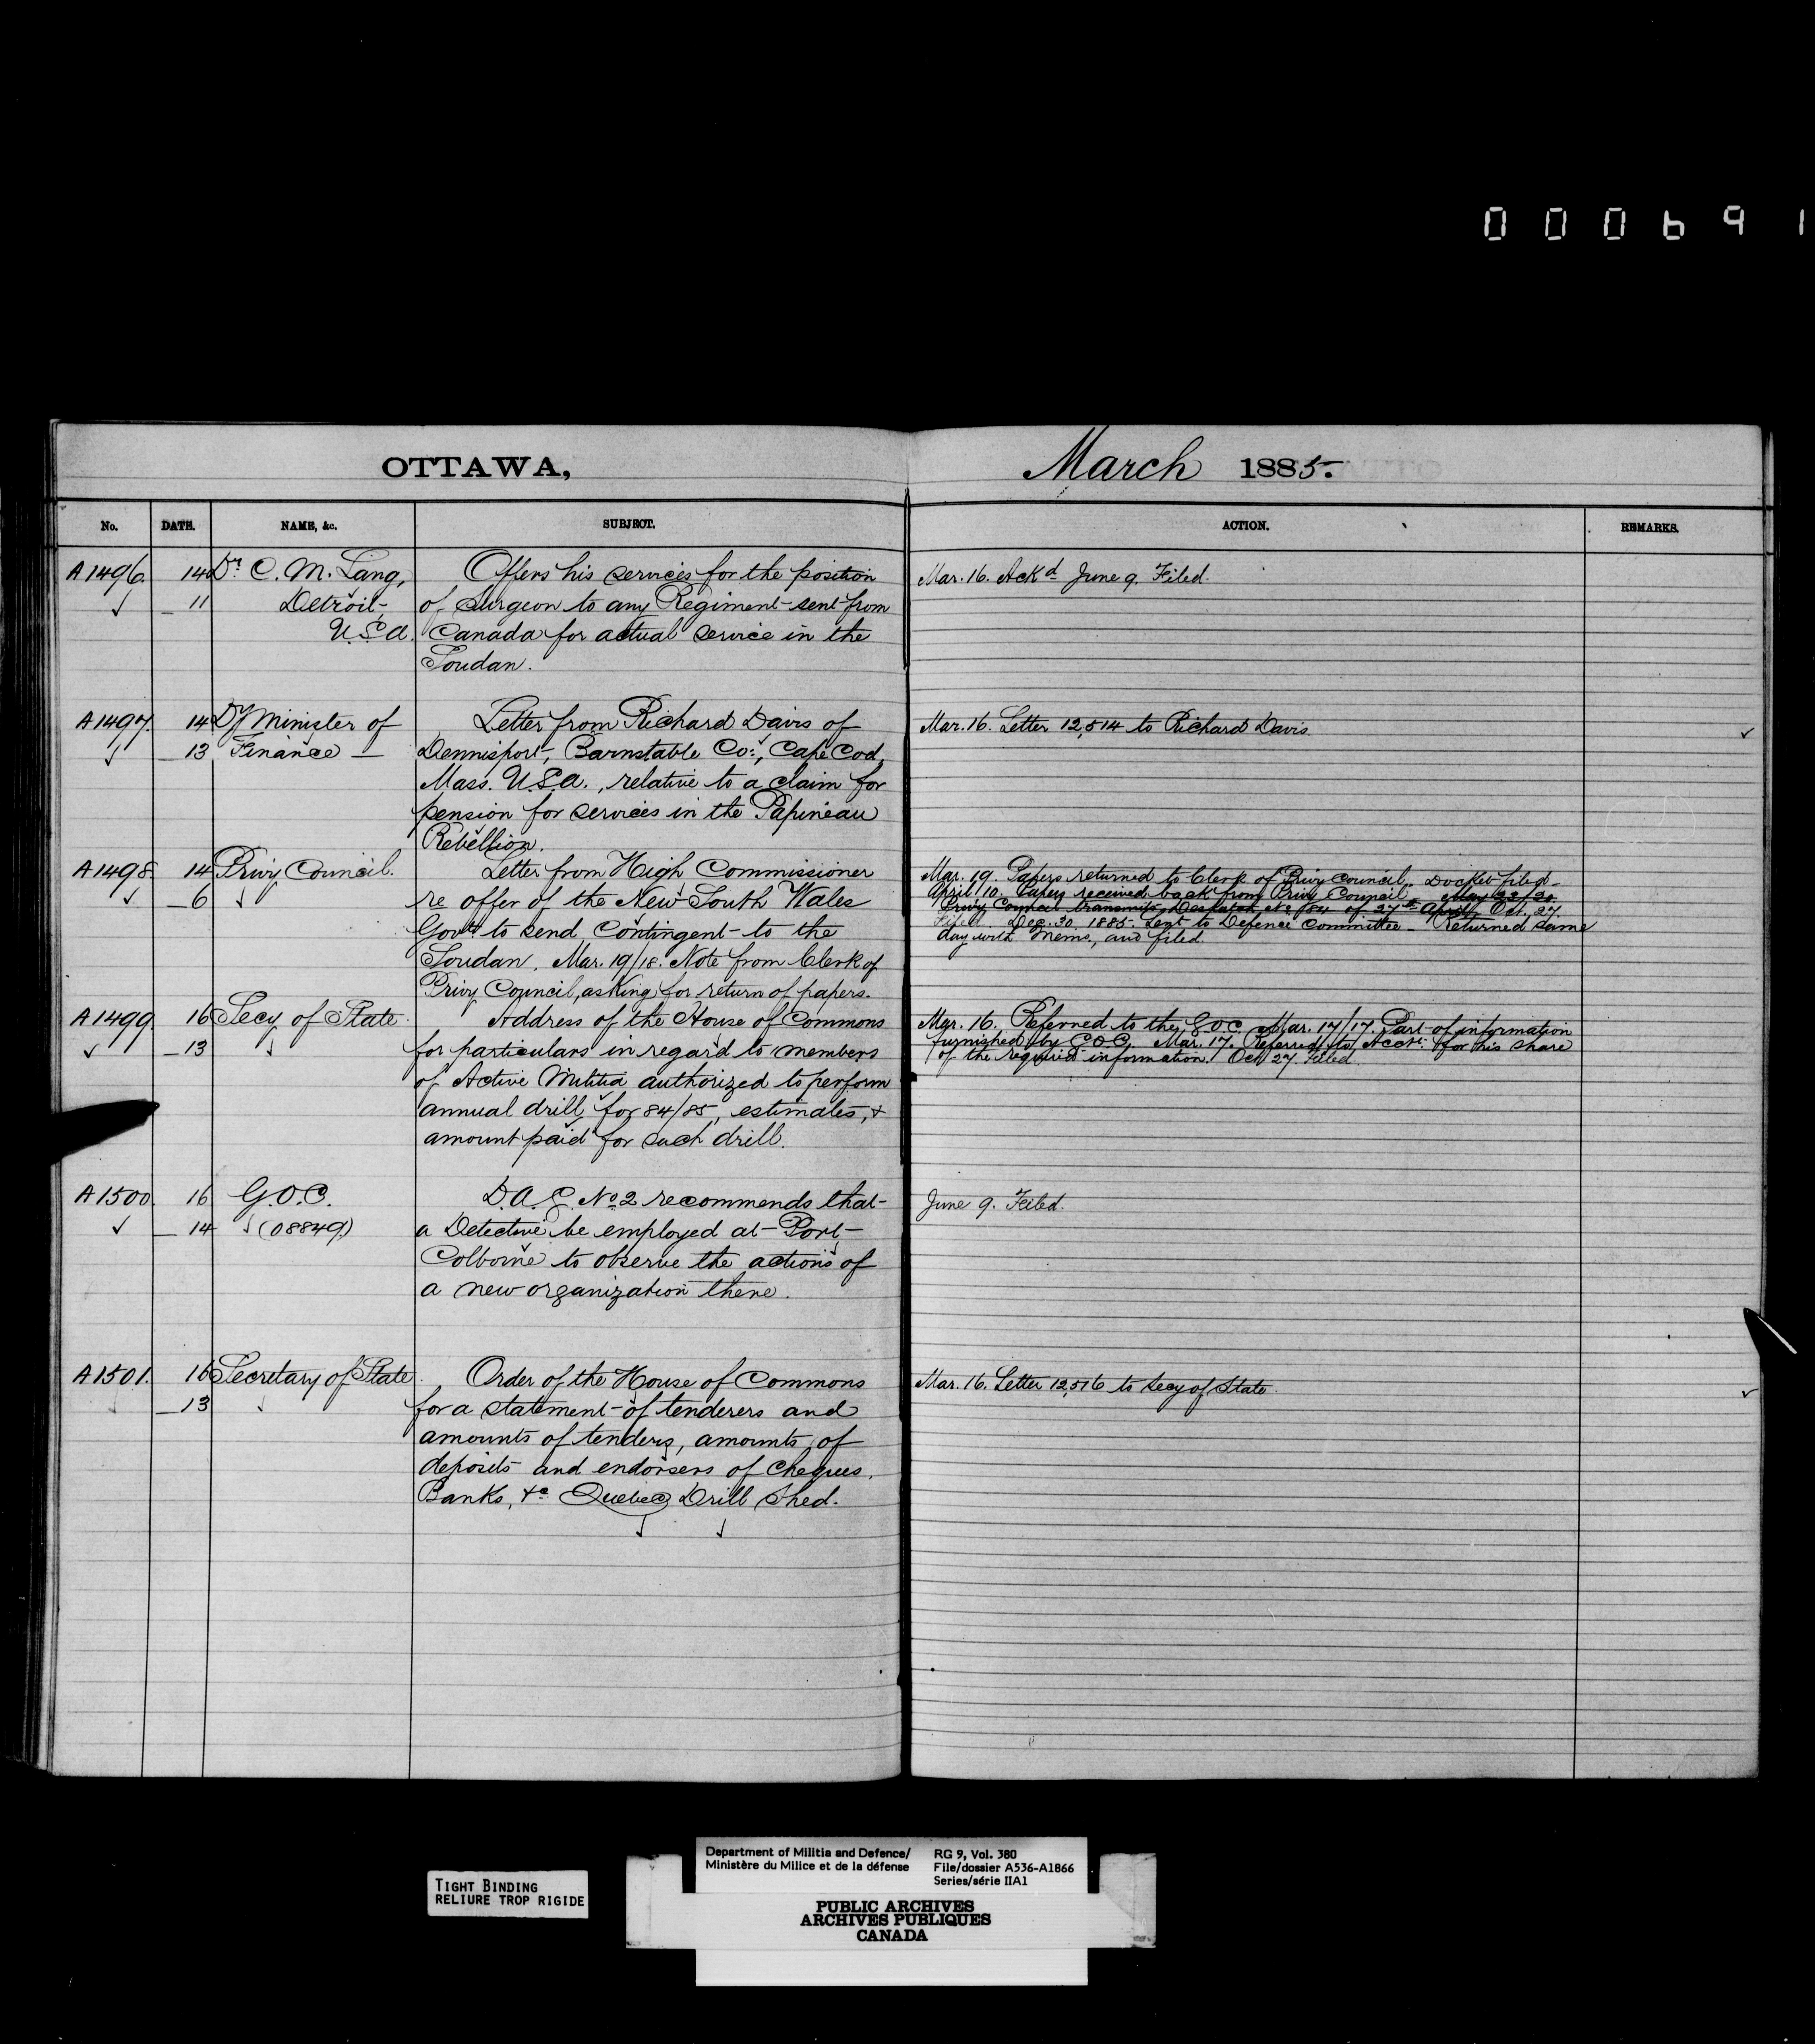 000691
OTTAWA, March 1885.
No. DATE. NAME, &c. SUBJECT. ACTION. REMARKS.
A1496. 14 Dr. C. M. Lang, Offers his services for the position Mar. 16. Ackd June 9. Filed.
✓ 11 Detroit, of Surgeon to any Regiment sent from
U.S.A. Canada for actual service in the
Soudan.
A1497. 14 Dy Minister of Letter from Richard Davis of Mar. 16. Letter 12,514 to Richard Davis. ✓
✓ 13 Finance — Dennisport, Barnstable Co., Cape Cod,
Mass. U.S.A., relative to a claim for
pension for services in the Papineau
Rebellion.
A1498. 14 Privy Council. Letter from High Commissioner Mar. 19. Papers returned to Clerk of Privy Council. Docket filed.
✓ 6 ✓ re offer of the New South Wales April 10. Papers received back from Privy Council. May 22/20.
Govt to send Contingent to the Privy Council transmits Despatch No of 27th April. Oct. 27.
Soudan. Mar. 19/18. Note from Clerk of Filed. Dec. 30. 1885. Sent to Defence Committee. Returned same
Privy Council, asking for return of papers. day with memo, and filed.
A1499 16 Secy of State. Address of the House of Commons Mar. 16. Referred to the G.O.C. Mar. 17/17. Part of information
✓ 13 ✓ for particulars in regard to members furnished by G.O.C. Mar. 17. Referred to Acct. for his share
of Active Militia authorized to perform of the required information. Oct 27. Filed.
annual drill for 84/85, estimates, &
amount paid for such drill.
A1500. 16 G.O.C. D.A.G. No 2 recommends that June 9. Filed.
✓ 14 ✓ (08849.) a Detective be employed at Port
Colborne to observe the actions of
a new organization there.
A1501. 16 Secretary of State. Order of the House of Commons Mar. 16. Letter 12,516 to Secy of State. ✓
✓ 13 ✓ for a statement of tenderers and
amounts of tenders, amounts of
deposits and endorsers of cheques,
Banks, &c. Quebec Drill Shed.
TIGHT BINDING
RELIURE TROP RIGIDE
Department of Militia and Defence/ RG 9, Vol. 380
Ministère du Milice et de la défense File/dossier A536-A1866
Series/série IIA1
PUBLIC ARCHIVES
ARCHIVES PUBLIQUES
CANADA